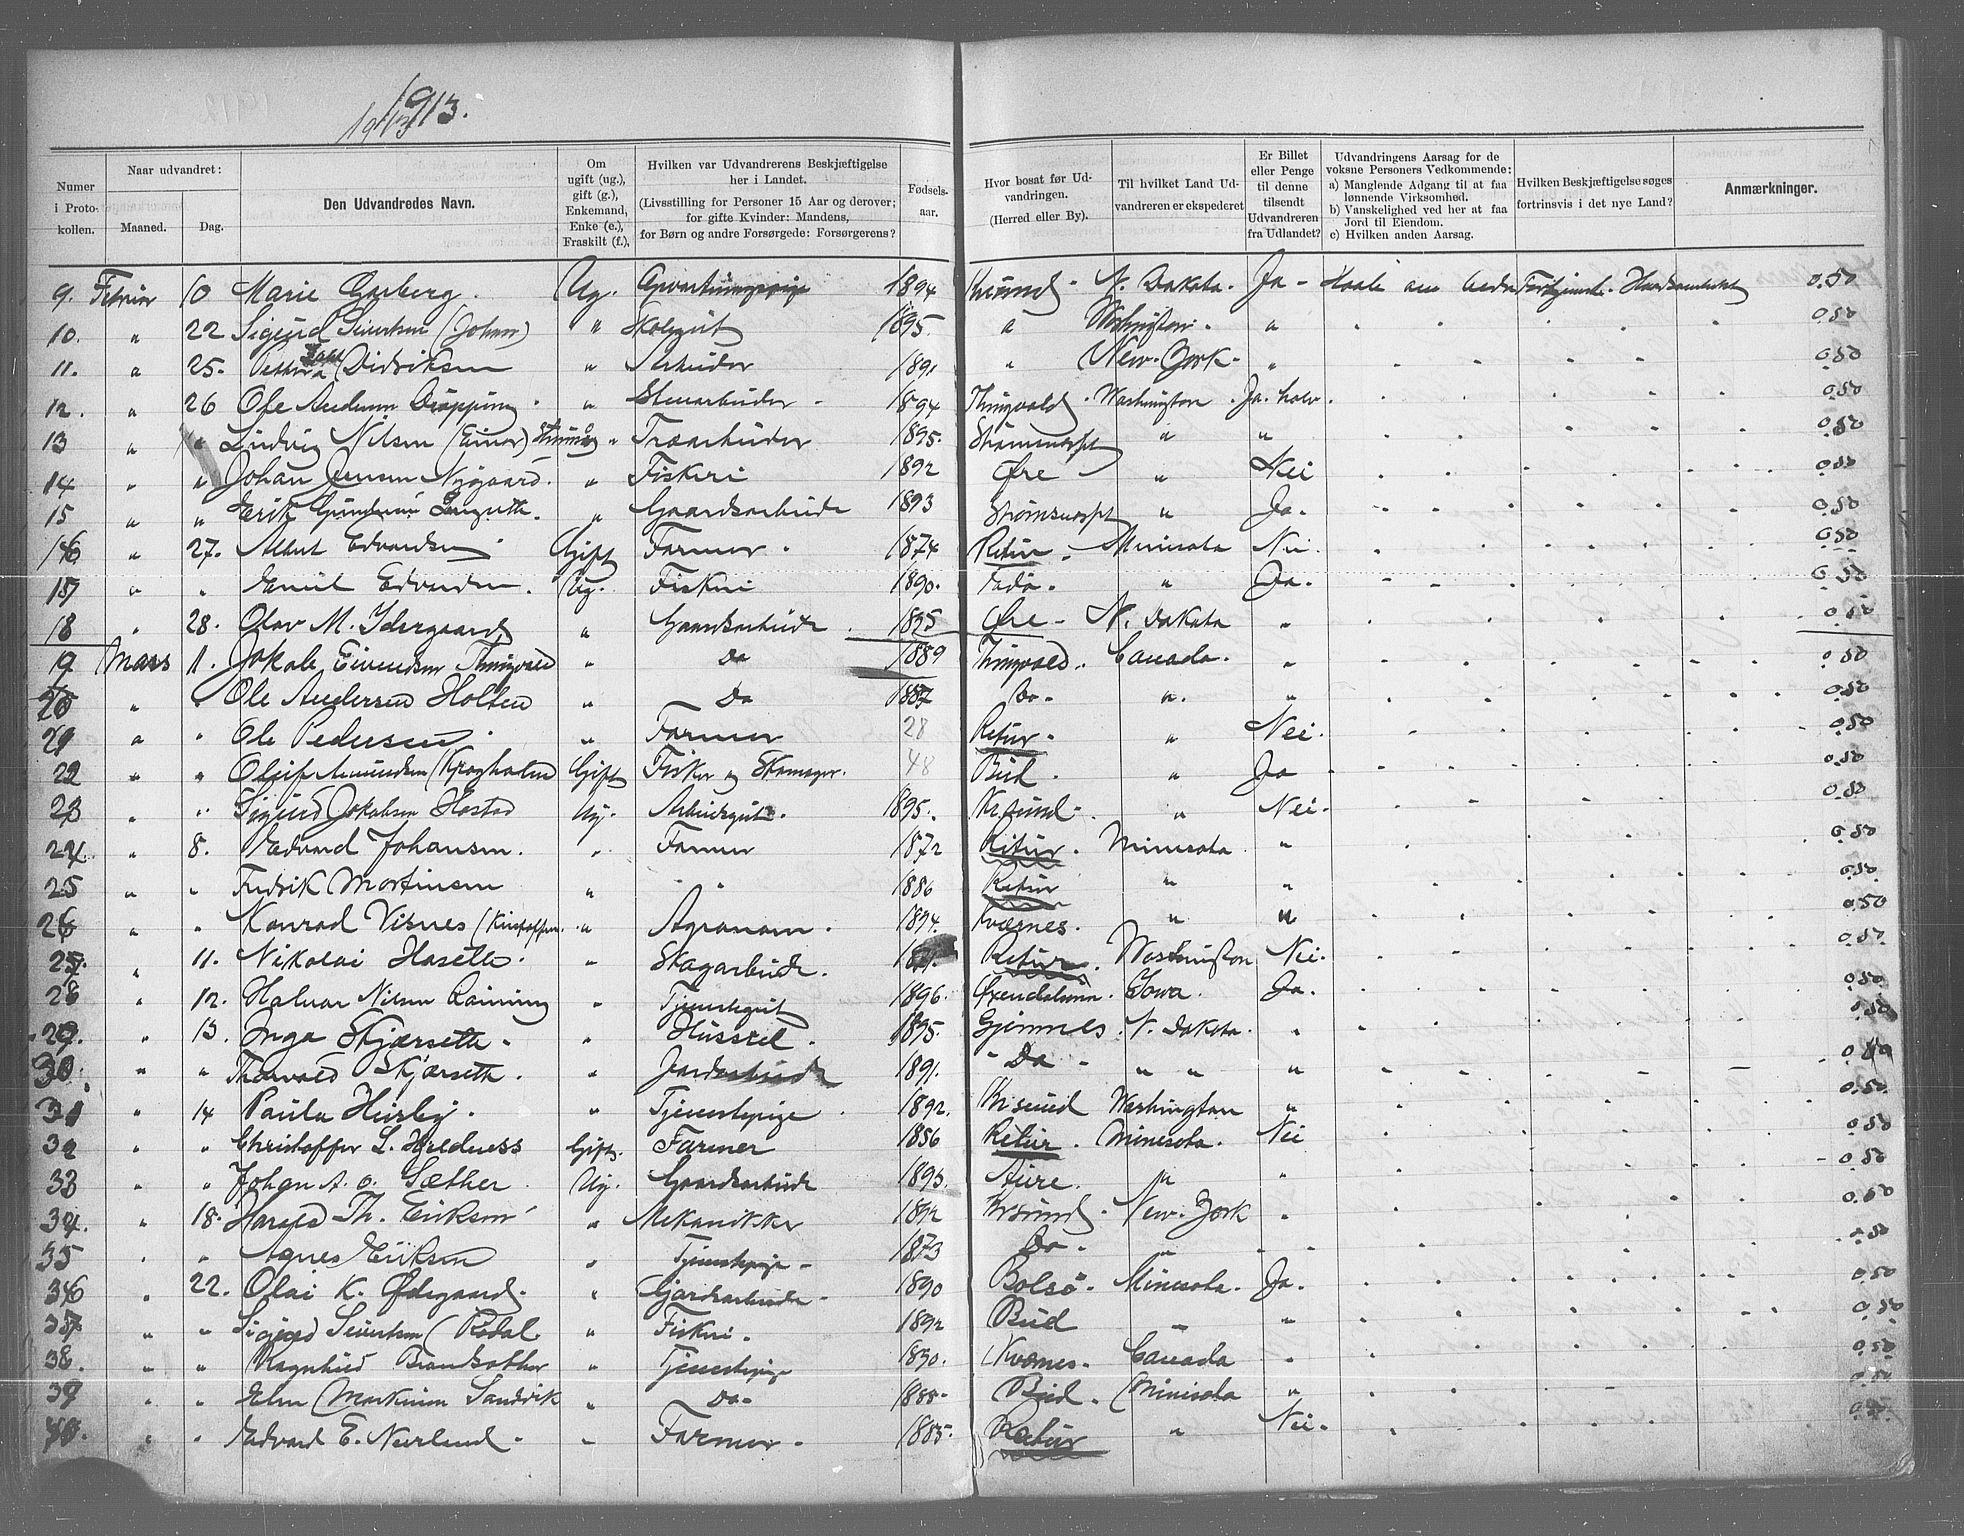 1913.
Numer i Proto-kollen. | Naar udvandret: Maaned. Dag. | Den Udvandredes Navn. | Om ugift (ug.), gift (g.), Enkemand, Enke (e.), Fraskilt (f.), | Hvilken var Udvandrerens Beskjæftigelse her i Landet. (Livsstilling for Personer 15 Aar og derover; for gifte Kvinder: Mandens, for Børn og andre Forsørgede: Forsørgerens? | Fødsels-aar. | Hvor bosat før Ud-vandringen. (Herred eller By). | Til hvilket Land Ud-vandreren er ekspederet | Er Billet eller Penge til denne tilsendt Udvandreren fra Udlandet? | Udvandringens Aarsag for de voksne Personers Vedkommende: a) Manglende Adgang til at faa lønnende Virksomhed. b) Vanskelighed ved her at faa Jord til Eiendom. c) Hvilken anden Aarsag. | Hvilken Beskjæftigelse søges fortrinsvis i det nye Land? | Anmærkninger.
9. Februar 10 Marie Garberg. Ug. 1894 Krsund N. Dakota. Ja - Haab om bedre Fortjeneste. 0.50
10. " 22 Sigurd Sivertsen (Johans) " Skolegut 1895. " Washington. " 0.50
11. " 25. Didriksen " Arbeider 1891 " New-York. " 0.50
12. " 26 Ole Andersen " Stenarbeider 1894 Thingvold Washington. Ja. halv. 0.50
13 " " Ludvig Nilsen (Einar) " Træarbeider 1895. Strømsneset " " 0.50
14 " " Johan Jensen Nygaard. " Fiskeri 1892 Øre " Nei 0.50
15 " " Erik " Gaardsarbeide 1893 Strømsneset " Ja. 0.50
16 " 27. Albert Edvardsen Gift Farmer. 1874 Retur. Minisota Nei. 0.50
17 " " Emil Edvardsen. Ug. Fiskeri 1890. " Ja. 0.50
18 " 28. Olav M. Idergaard " Gaardsarbeide 1895 Øre - N. Dakota " 0.50
19 Mars 1. Jakob Eivendsen Thingvold " Do 1889 Thingvold. Canada. " 0.50
20 " " Ole Andersen Holten " Do 1887 Do. " " 0.50
21 " " Ole Pedersen. " Farmer 28 Retur. " Nei. 0.50
22 " " Oluf Amundsen (Kragholm Gift Fisker og Skomager. 48 Bud. " Ja 0.50
23 " " Sigurd Jakobsen Hostad Ug. Arbeidsgut. 1895. Krsund. " Nei. 0.50
24. " 8. Edvard Johansen. " Farmer 1872 Retur. Minisota " 0.50
25 " " Fredrik Martinsen " " 1886 Retur " " 0.50
26 " " Konrad Visnes " Agronom. 1894. Kværnes. " " 0.50
27. " 11. Nikolai Hoseth. " Skogarbeide. Retur. Washington Nei. 0.50
28 " 12. Halvor Nilsen " Tjenestegut 1896. Øxendalen. Iowa. Ja. 0.50
29. " 13. Inga Skjærseth. " Husstel. 1895. Gjemnes. N. Dakota. " 0.50
30. " " Thorvald Skjærseth. " Jordarbeide 1891. - Do - " " " 0.50
31 " 14 Paula Husby. " Tjenestepige 1892. Krsund Washington " 0.50
32 " " Christoffer L. Hjeldness Gift. Farmer 1856 Retur. Minisota. Nei 0.50
33 " " Johan A. O. Sæther. Ug. Gaardsarbeide 1893. Aure. " " 0.50
34. " 18. Harald Th. Eriksen " Mekanikker 1892 Krsund. New-York " 0.50
35 " " Agnes Eriksen " Tjenestepige - 1873 Do. " " 0.50
36 " 22. Olai K. Ødegaard. " Gardsarbeide. 1890 Bolsø. Minisota. Ja. 0.50
37. " " Sigurd Sivertsen (Rødal. " Fiskeri. 1892 Bud " " 0.50
38. " " Ragnhild Brandsæther " Tjenestepige 1890. Kværnes. Canada " 0.50
39 " " Elen Sandvik " Do. 1888. Bud. Minisota " 0.50
40. " " Edvard E. Neerland. " Farmer. 1885. Retur " Nei.